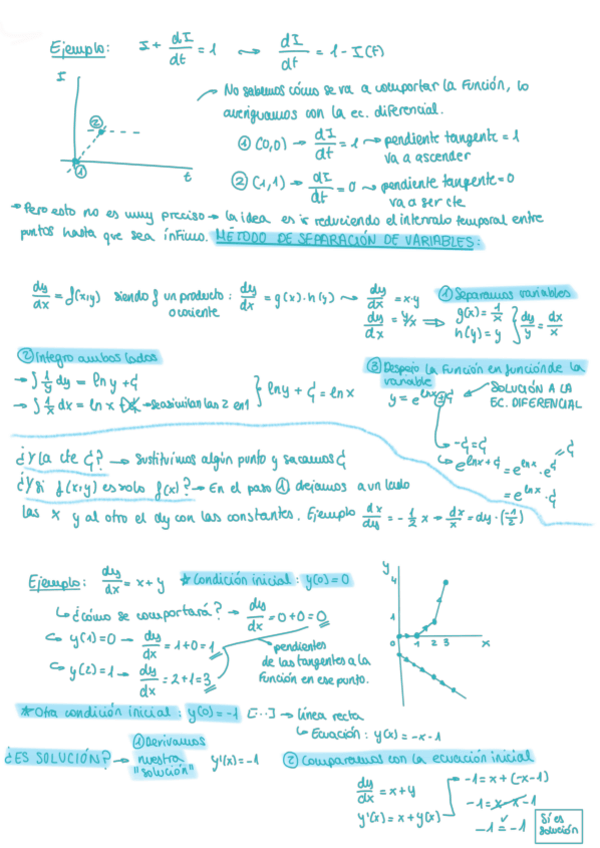 Ejemplo: I + dI/dt = 1 ⤳ dI/dt = 1 - I(t)
I
②
①
t
No sabemos cómo se va a comportar la función, lo
averiguamos con la ec. diferencial.
① (0,0) → dI/dt = 1 ⤳ pendiente tangente = 1
va a ascender
② (1,1) → dI/dt = 0 ⤳ pendiente tangente = 0
va a ser cte
→ Pero esto no es muy preciso → la idea es ir reduciendo el intervalo temporal entre
puntos hasta que sea ínfimo. MÉTODO DE SEPARACIÓN DE VARIABLES:
dy/dx = f(x,y) siendo f un producto o cociente : dy/dx = g(x)·h(y) ⤳ dy/dx = x·y
① Separamos variables
dy/dx = y/x ⇒ g(x) = 1/x h(y) = y } dy/y = dx/x
② Integro ambos lados
→ ∫ 1/y dy = ln y + C
→ ∫ 1/x dx = ln x → se asimilan las 2 en 1
} ln y + C = ln x
③ Despejo la función en función de la
variable
SOLUCIÓN A LA
EC. DIFERENCIAL
-C = C
e^(ln x + C) = e^(ln x) · e^C
= e^(ln x) · C
¿Y la cte C? → Sustituimos algún punto y sacamos C
¿Y si f(x,y) es solo f(x)? → En el paso ① dejamos a un lado
las x y al otro el dy con las constantes. Ejemplo dx/dy = -1/2 x → dx/x = dy·(-1/2)
Ejemplo: dy/dx = x + y ★ Condición inicial: y(0) = 0
↳ ¿cómo se comportará? → dy/dx = 0 + 0 = 0
y(1) = 0 → dy/dx = 1 + 0 = 1
y(2) = 1 → dy/dx = 2 + 1 = 3
pendientes
de las tangentes a la
función en ese punto.
y
4
1
0 1 2 3 x
★ Otra condición inicial: y(0) = -1 [...] → línea recta
↳ Ecuación: y(x) = -x - 1
¿ES SOLUCIÓN? → ① Derivamos
nuestra
"solución"
y'(x) = -1
② Comparamos con la ecuación inicial
dy/dx = x + y
y'(x) = x + y(x)
-1 = x + (-x - 1)
-1 = x - x - 1
-1 = -1 ✓
Sí es
solución